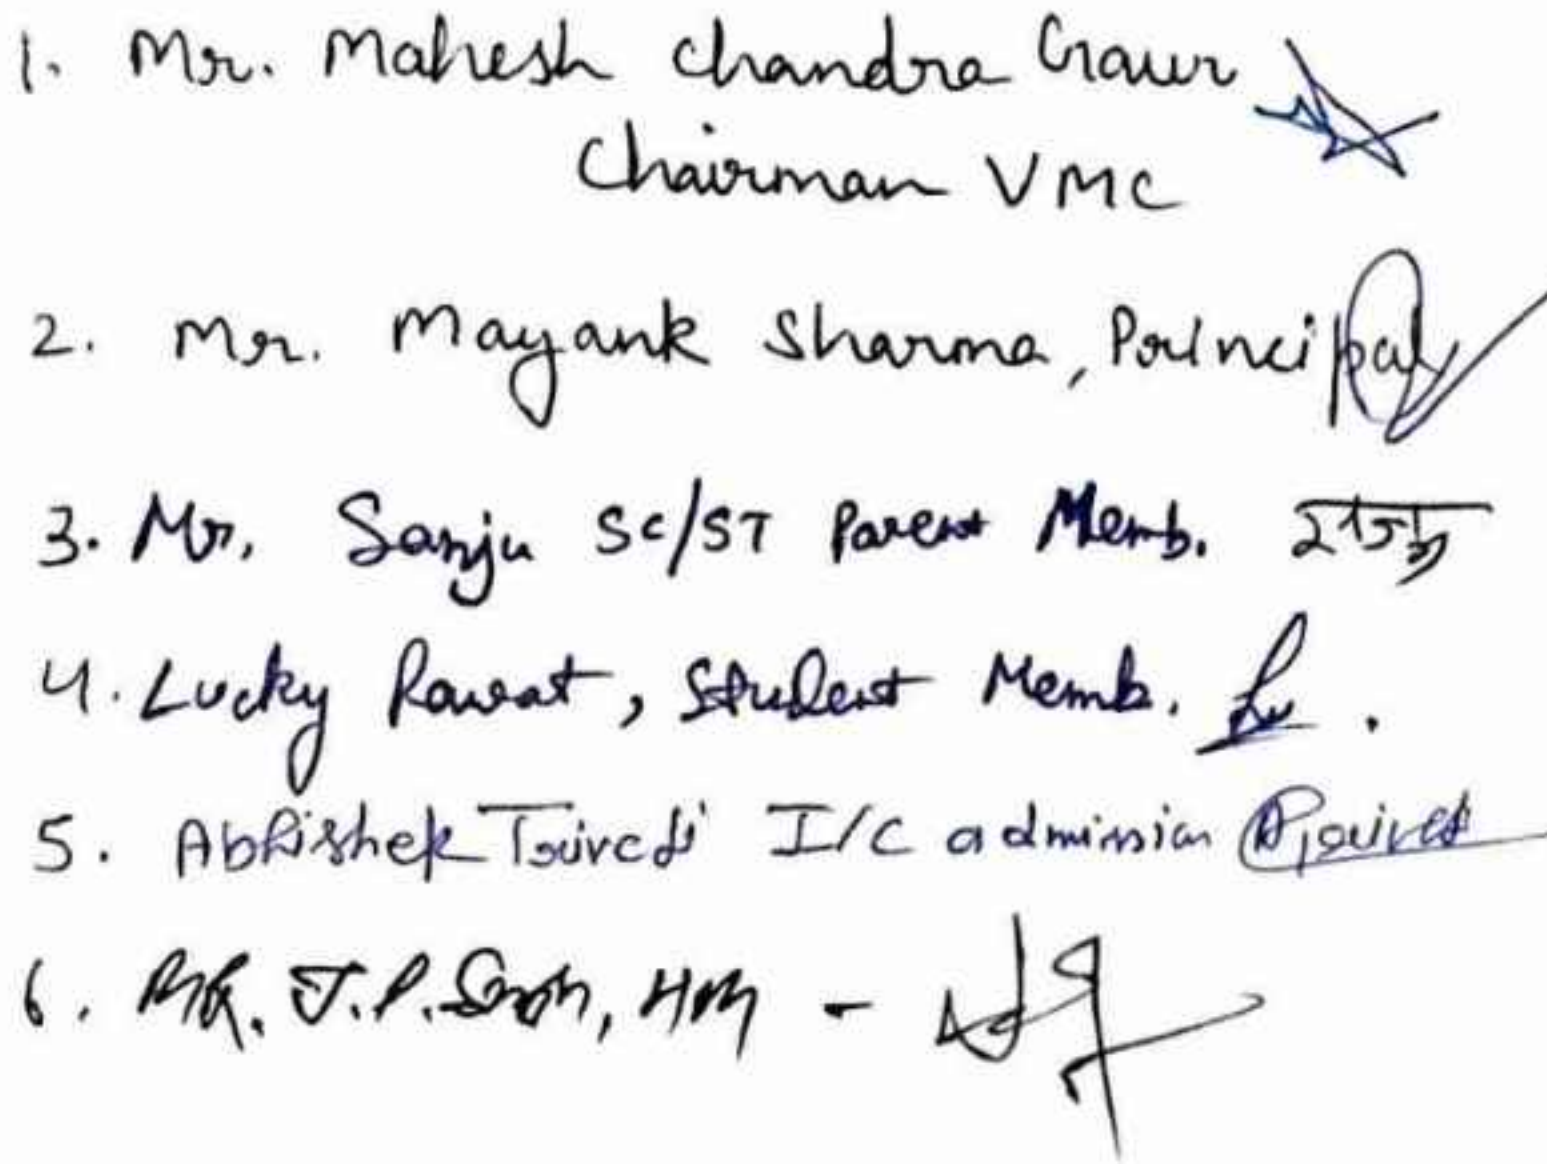 1. Mr. Mahesh Chandra Gaur
Chairman VMC
2. Mr. Mayank Sharma, Principal
3. Mr. Sanju SC/ST Parent Memb.
4. Lucky Rawat, Student Memb.
5. Abhishek Trivedi I/C admission
6. MR. J.P. Singh, HM -